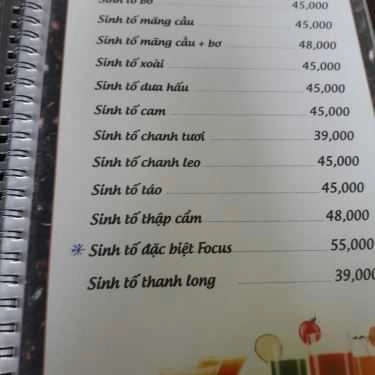 Sinh tố bơ 45,000
Sinh tố mãng cầu 45,000
Sinh tố mãng cầu + bơ 48,000
Sinh tố xoài 45,000
Sinh tố dưa hấu 45,000
Sinh tố cam 45,000
Sinh tố chanh tươi 39,000
Sinh tố chanh leo 45,000
Sinh tố táo 45,000
Sinh tố thập cẩm 48,000
Sinh tố đặc biệt Focus 55,000
Sinh tố thanh long 39,000